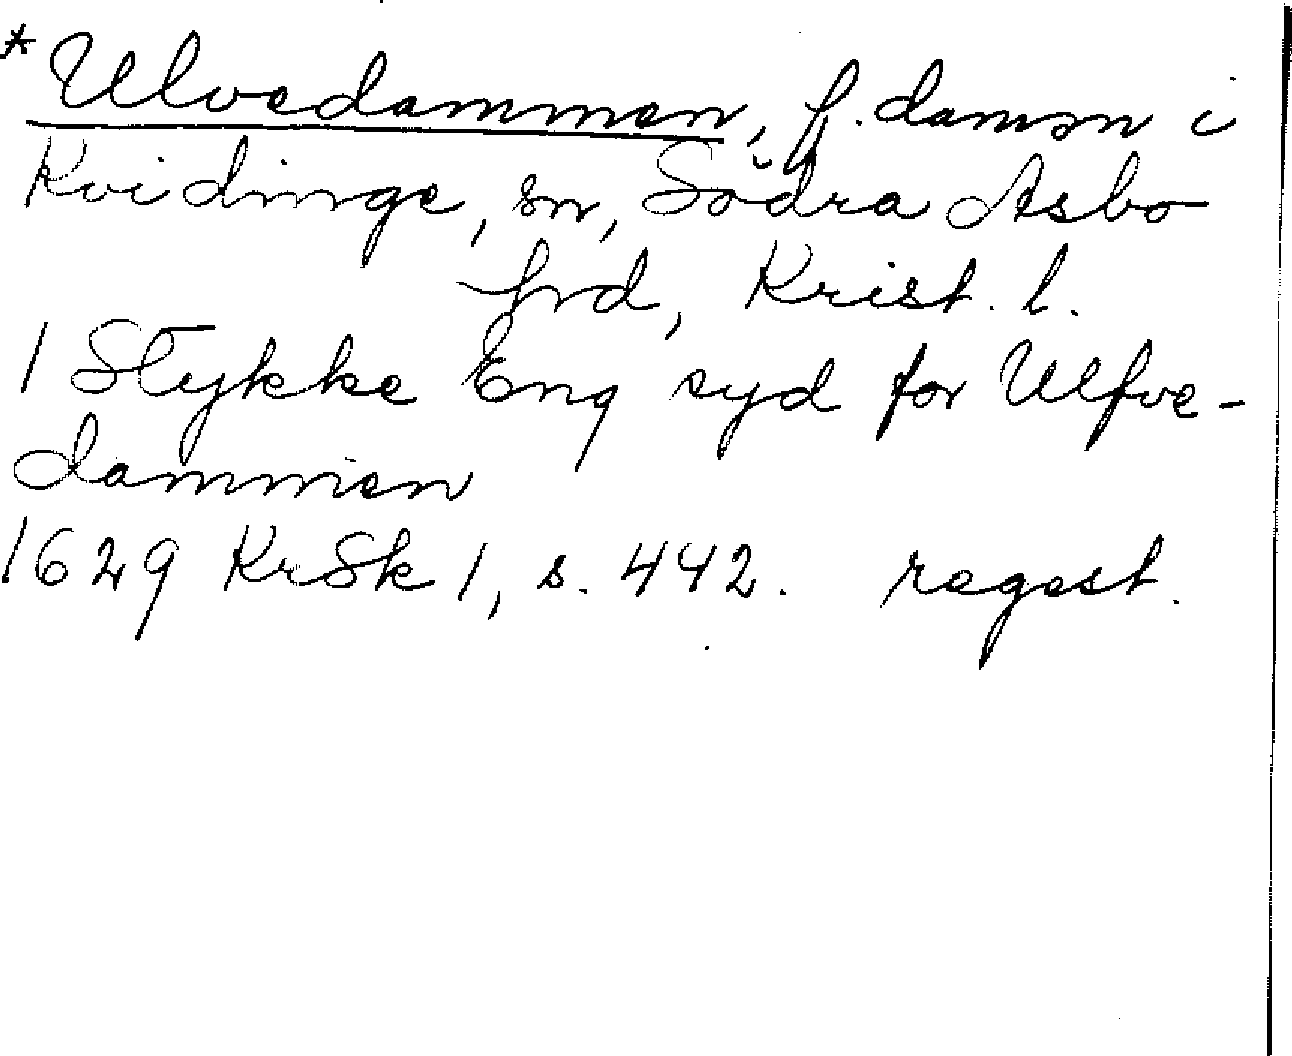 *Ulvedammen, f. damm i
Kvidinge, sn, Södra Åsbo
hd, Krist. l.
1 Stykke Eng syd for Ulfve-
dammen
1629 KrSk 1, s. 442. regest.